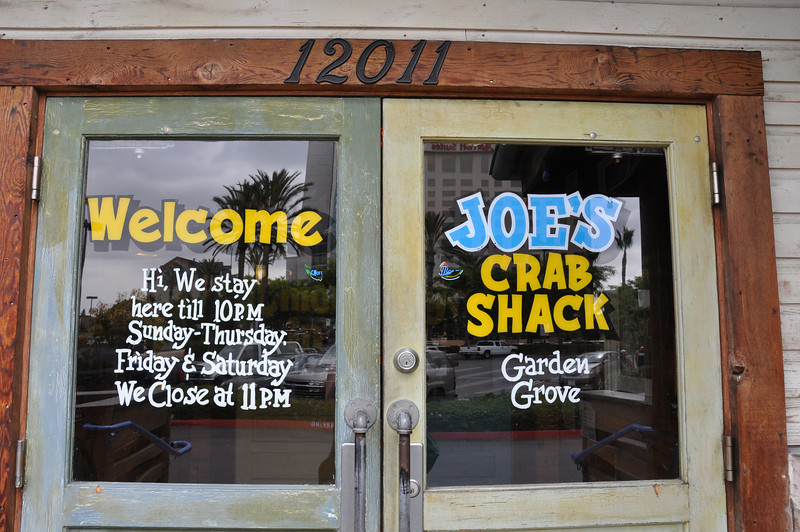 12011
Welcome
Hi, We stay
here till 10 P.M
Sunday-Thursday.
Friday & Saturday
We Close at 11 P.M
JOE'S
CRAB
SHACK
Garden
Grove